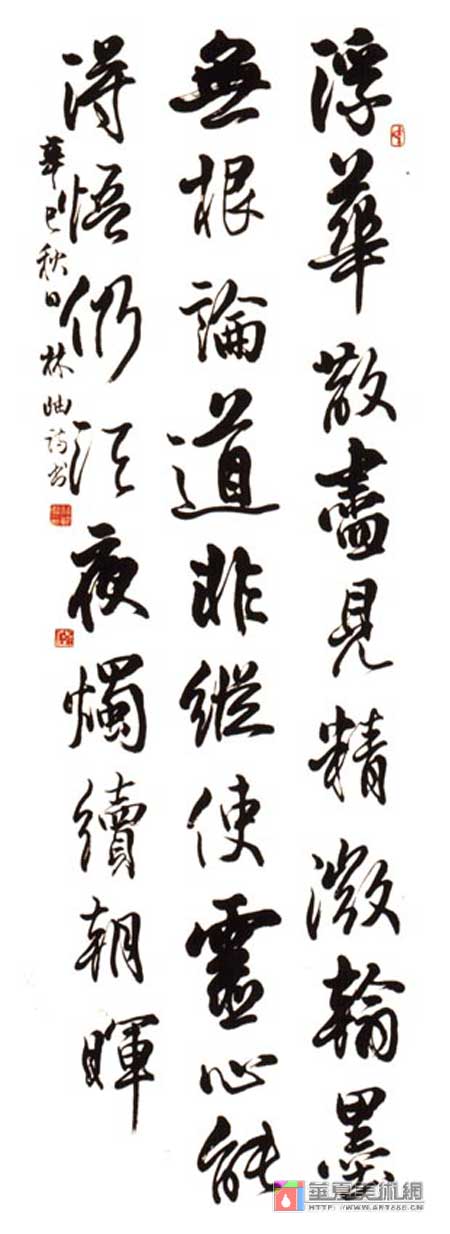 浮華散盡見精微翰墨
無根論道非縱使靈心能
得悟仍須夜燭續朝暉
辛巳秋日 林岫詩书
華夏美術網